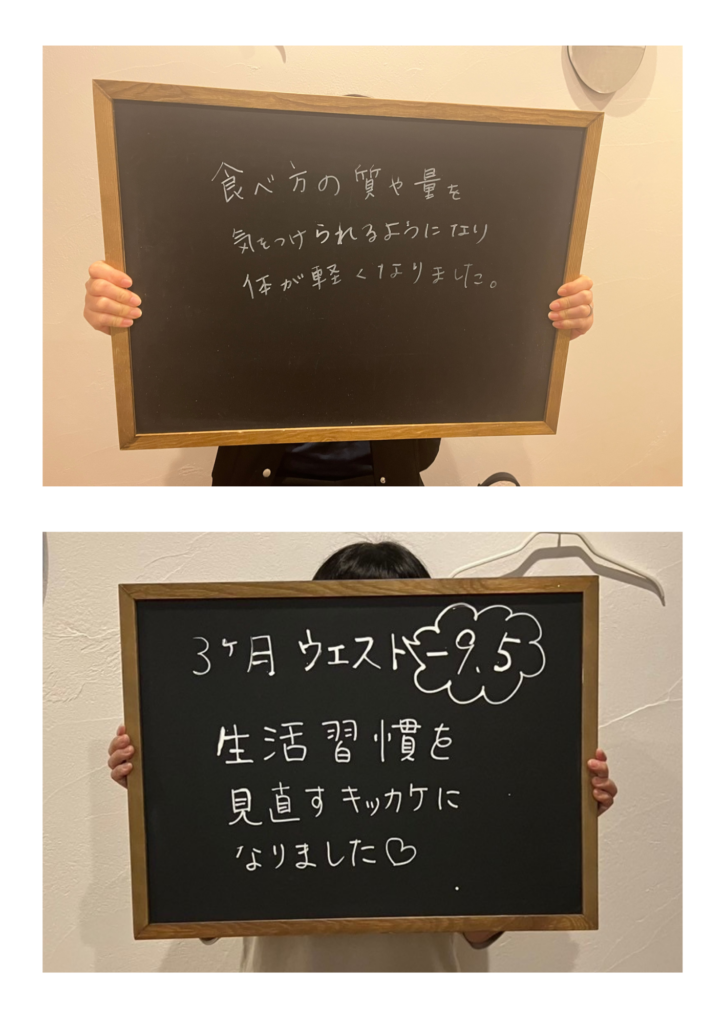 食べ方の質や量を
気をつけられるようになり
体が軽くなりました。
3ヶ月 ウエスト -9.5
生活習慣を
見直すキッカケに
なりました♡